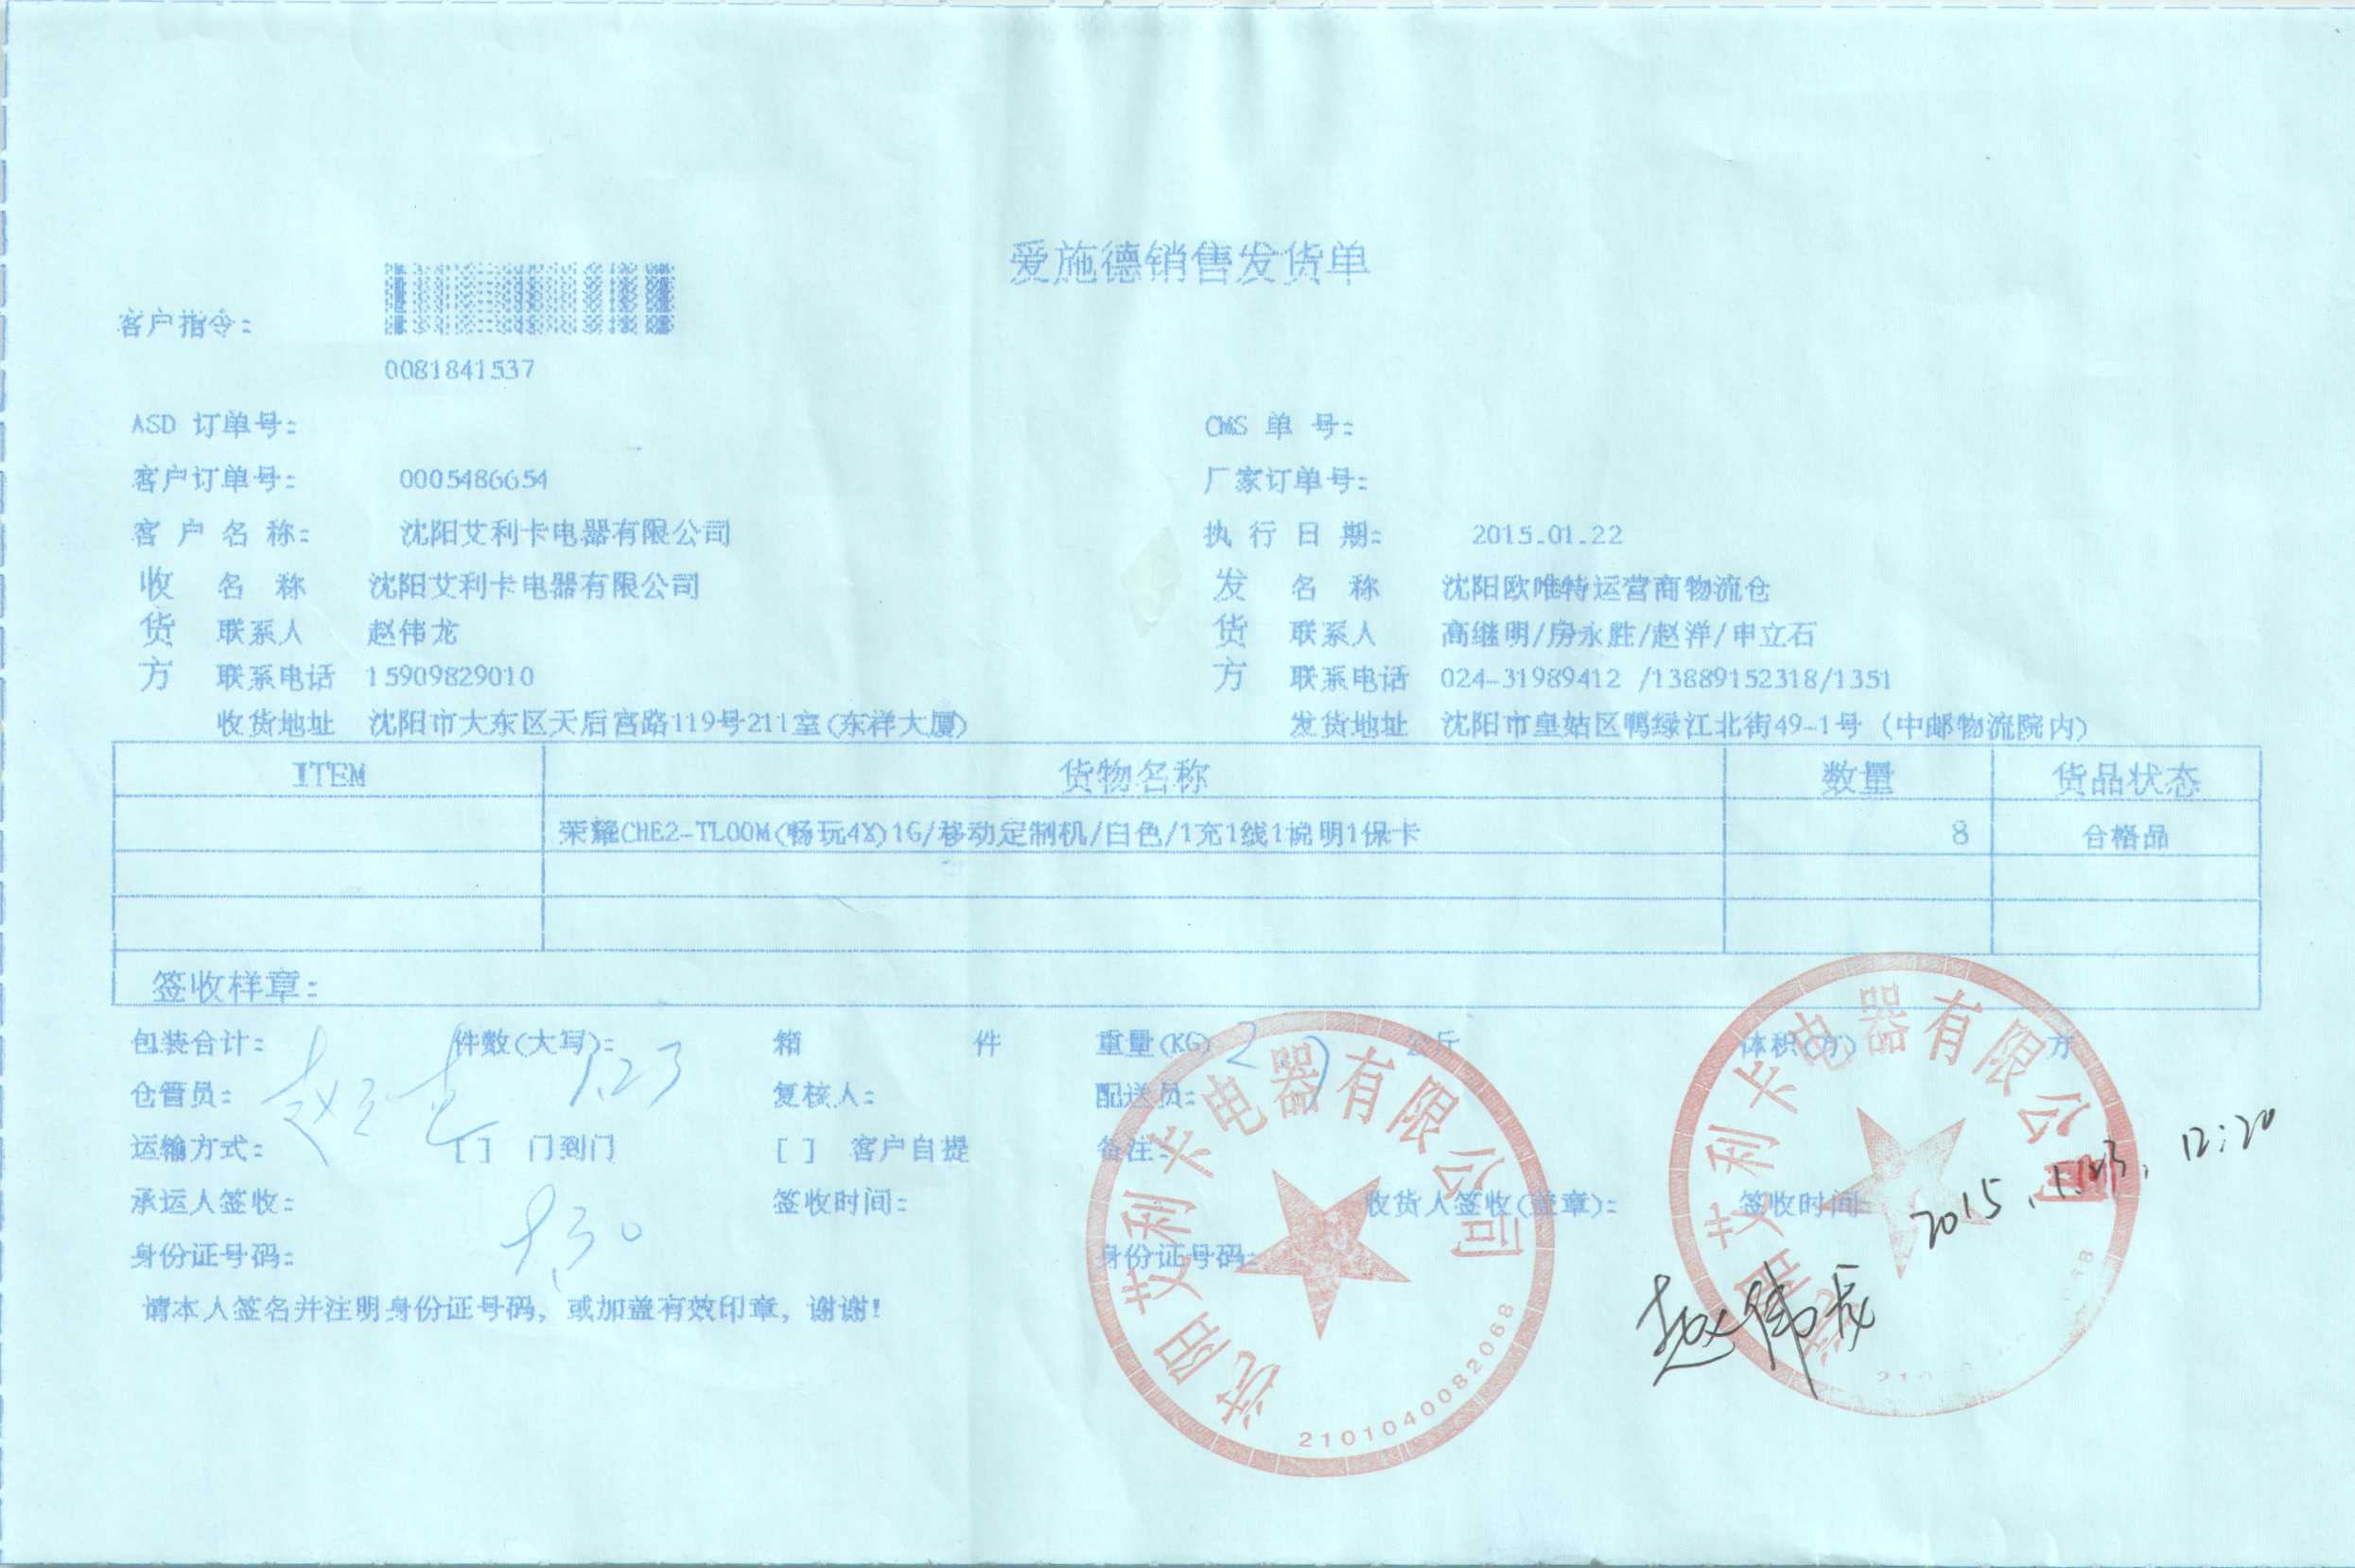 爱施德销售发货单
客户指令:
0081841537
ASD 订单号: CMS 单 号:
客户订单号: 0005486654 厂家订单号:
客 户 名 称: 沈阳艾利卡电器有限公司 执 行 日 期: 2015.01.22
收 名 称 沈阳艾利卡电器有限公司 发 名 称 沈阳欧唯特运营商物流仓
货 联系人 赵伟龙 货 联系人 高继明/房永胜/赵洋/申立石
方 联系电话 15909829010 方 联系电话 024-31989412 /13889152318/1351
收货地址 沈阳市大东区天后宫路119号211室(东祥大厦) 发货地址 沈阳市皇姑区鸭绿江北街49-1号 (中邮物流院内)
ITEM 货物名称 数量 货品状态
荣耀CHE2-TL00M(畅玩4X)1G/移动定制机/白色/1充1线1说明1保卡 8 合格品
签收样章:
包装合计: 件数(大写): 箱 件 重量(KG) 公斤 体积(方) 方
1.23
仓管员: 复核人: 配送员:
运输方式: [ ] 门到门 [ ] 客户自提 备注:
承运人签收: 签收时间: 收货人签收(盖章): 签收时间: 2015.1.23. 12:20
身份证号码: 身份证号码:
赵伟龙
请本人签名并注明身份证号码, 或加盖有效印章, 谢谢!
沈阳艾利卡电器有限公司
2101040082068
阳艾利卡电器有限公司